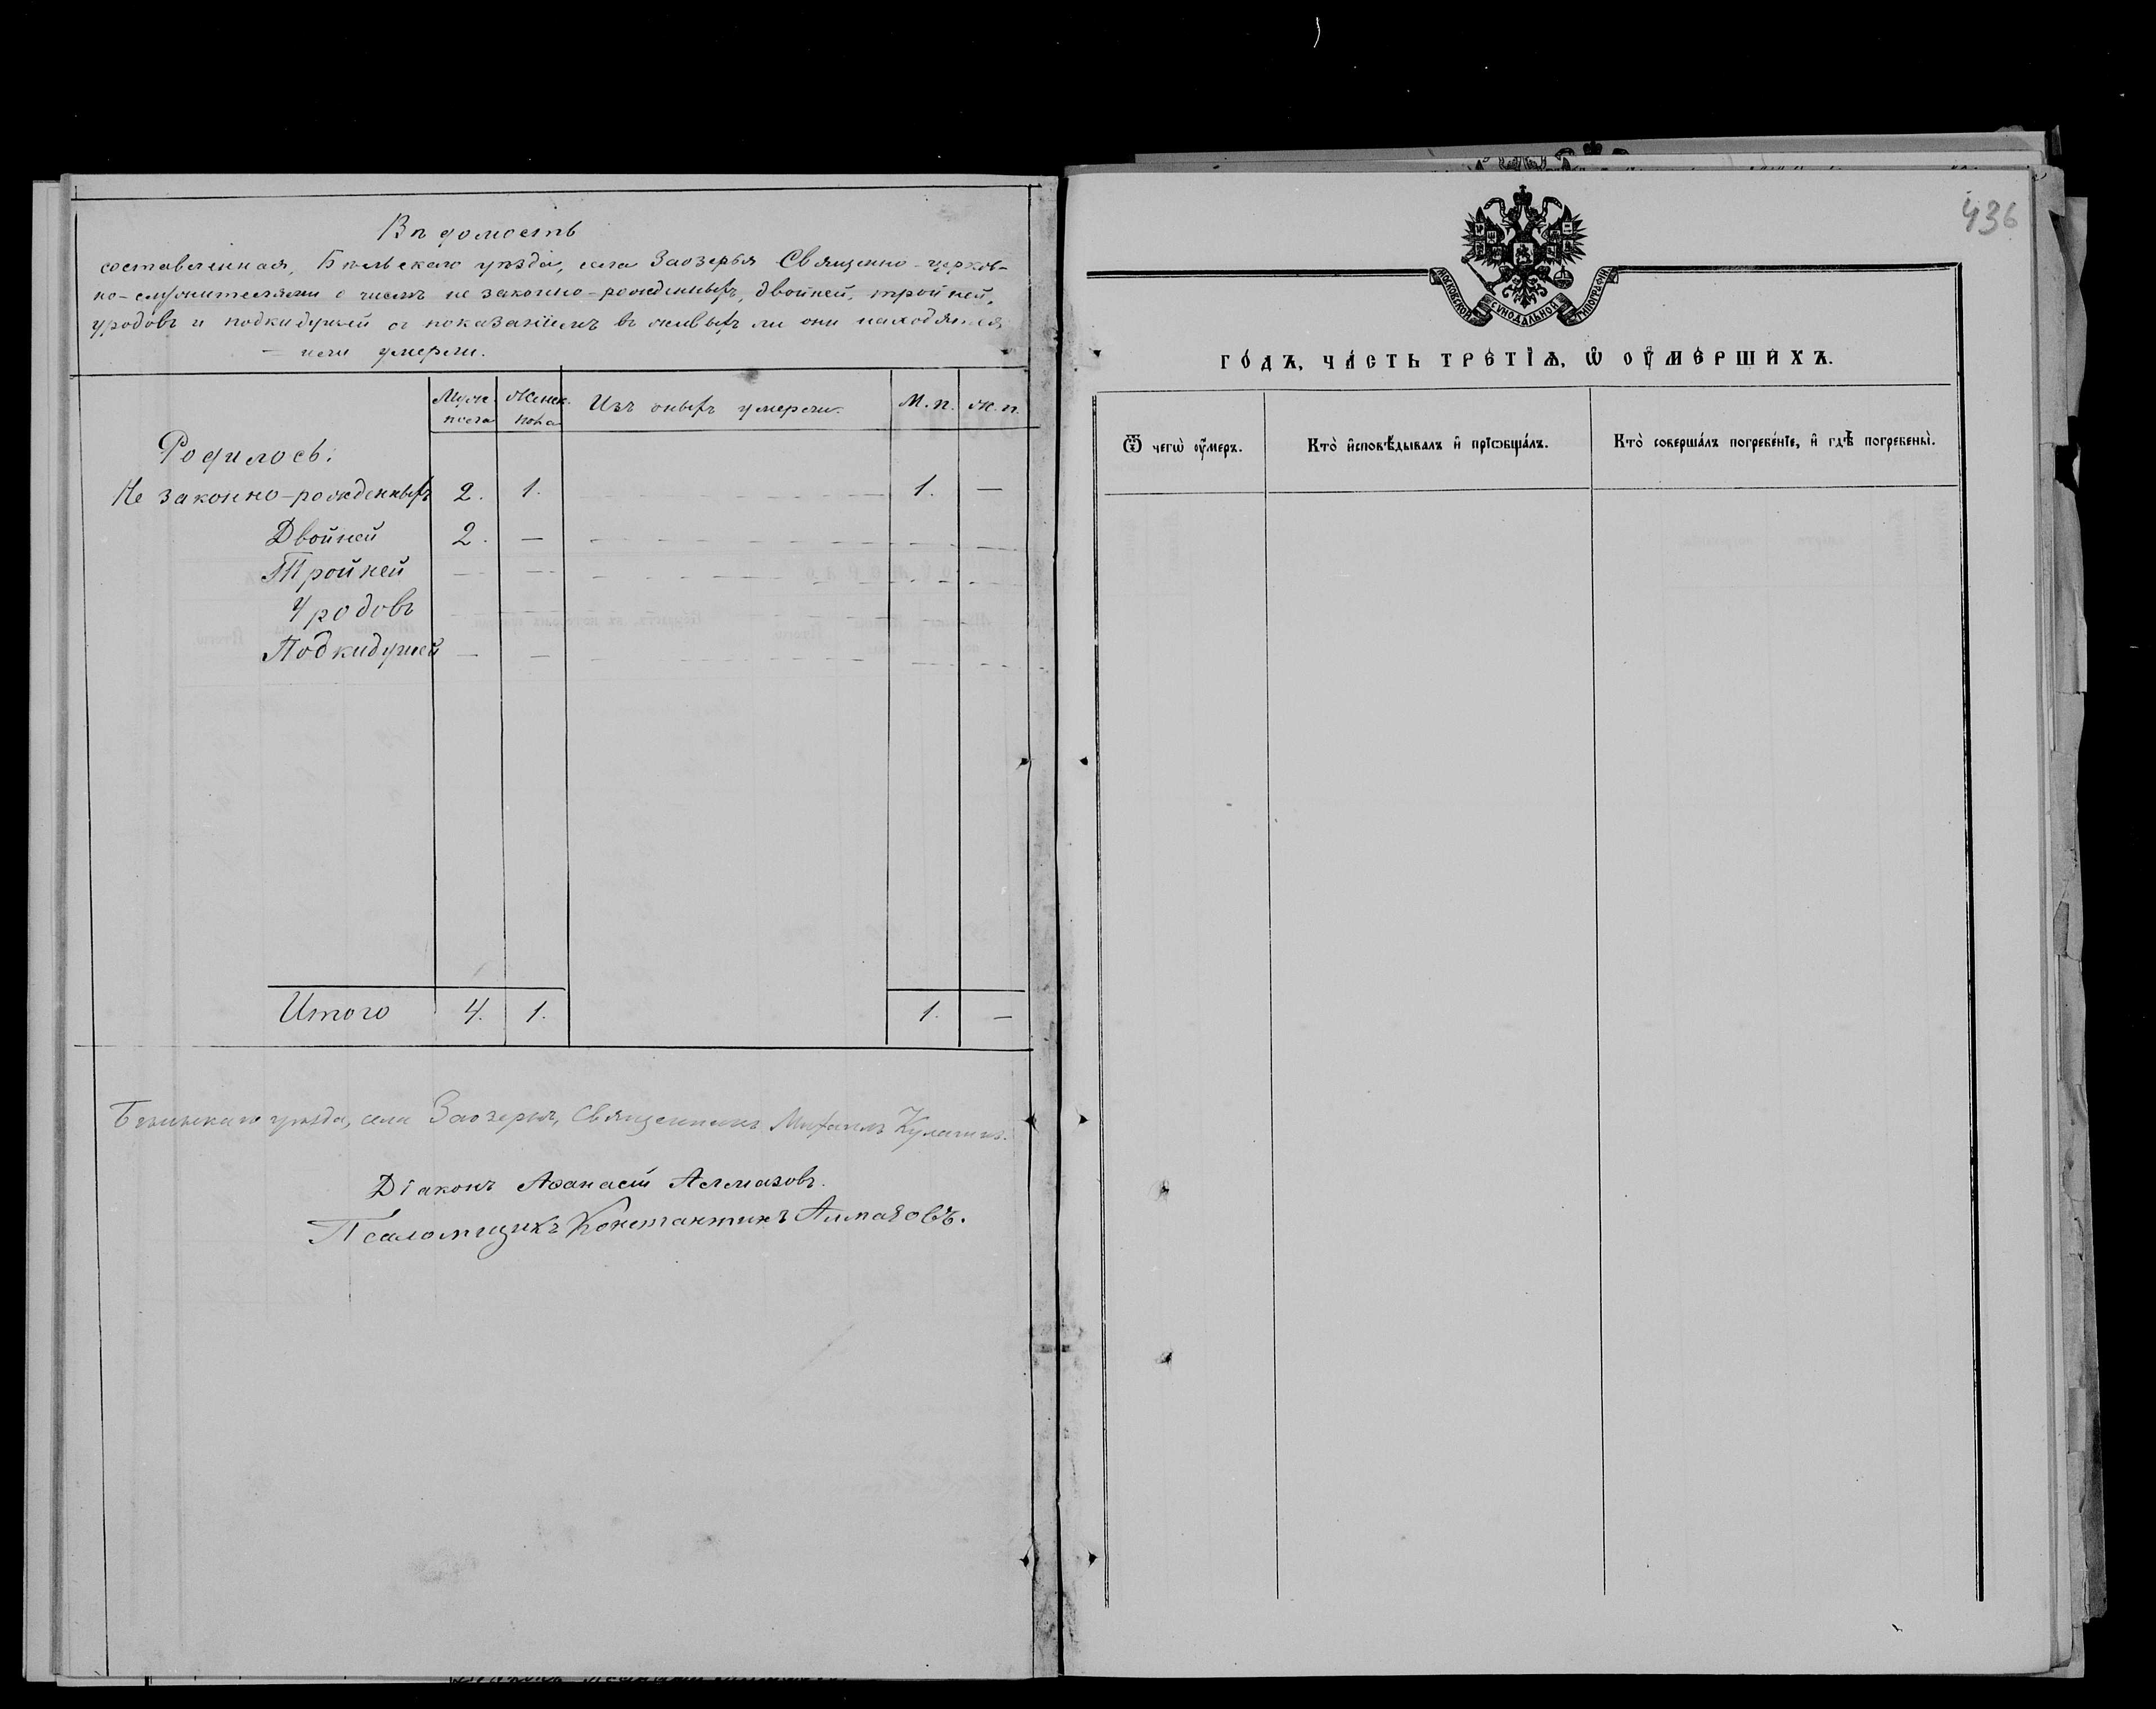 Вѣдомость
составленная, Бѣльскаго уѣзда, села Заозерья Священно-церков-
но-служителями о числѣ не законно-рожденныхъ, двойней, тройней,
уродовъ и подкидушей съ показаніемъ въ живыхъ ли они находятся
— или умерли.
Муж. пола Женск. пола Изъ оныхъ умерли. М. п. Ж. п.
Родилось:
Не законно-рожденныхъ 2. 1. 1. —
Двойней 2. —
Тройней — —
Уродовъ
Подкидушей — —
Итого 4. 1. 1. —
Бѣльскаго уѣзда, села Заозерья, Священникъ Михаилъ
Діаконъ Аѳанасій Алмазовъ.
Псаломщикъ Константинъ Алмазовъ.
436
МОСКОВСКОЙ СѴНОДАЛЬНОЙ ТИПОГРАФІИ
ГО́ДЪ, ЧА́СТЬ ТРЕ́ТІѦ, Ѡ҆ ОУ҆МЕ́РШИХЪ.
Ѿ чегѡ̀ оу҆́меръ. Кто̀ и҆сповѣ́дывалъ и҆ прїѡбща́лъ. Кто̀ соверша́лъ погребе́нїе, и҆ гдѣ̀ погребены̀.